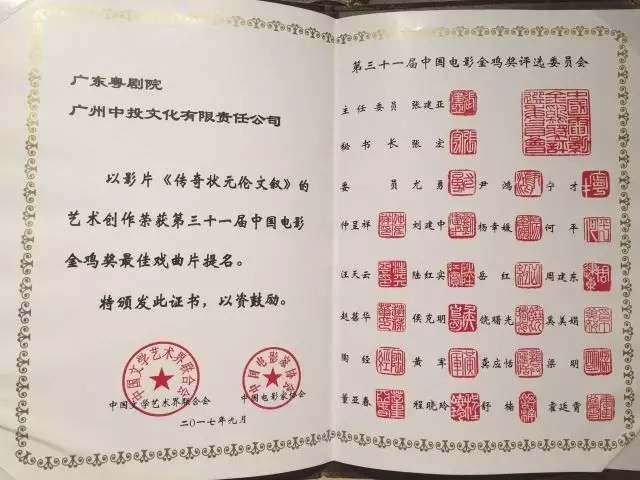 广东粤剧院
广州中投文化有限责任公司
以影片《传奇状元伦文叙》的
艺术创作荣获第三十一届中国电影
金鸡奖最佳戏曲片提名。
特颁发此证书，以资鼓励。
中国文学艺术界联合会
中国电影家协会
中国文学艺术界联合会 中国电影家协会
二〇一七年九月
第三十一届中国电影金鸡奖评选委员会
主任委员 张建亚
秘书长 张宏
委员 尤勇 尹鸿 宁才
仲呈祥 刘建中 杨幸媛 何平
汪天云 陆红实 岳红 周建东
赵葆华 侯克明 饶曙光 奚美娟
陶经 黄军 龚应恬 梁明
董亚春 程晓玲 舒楠 霍廷霄